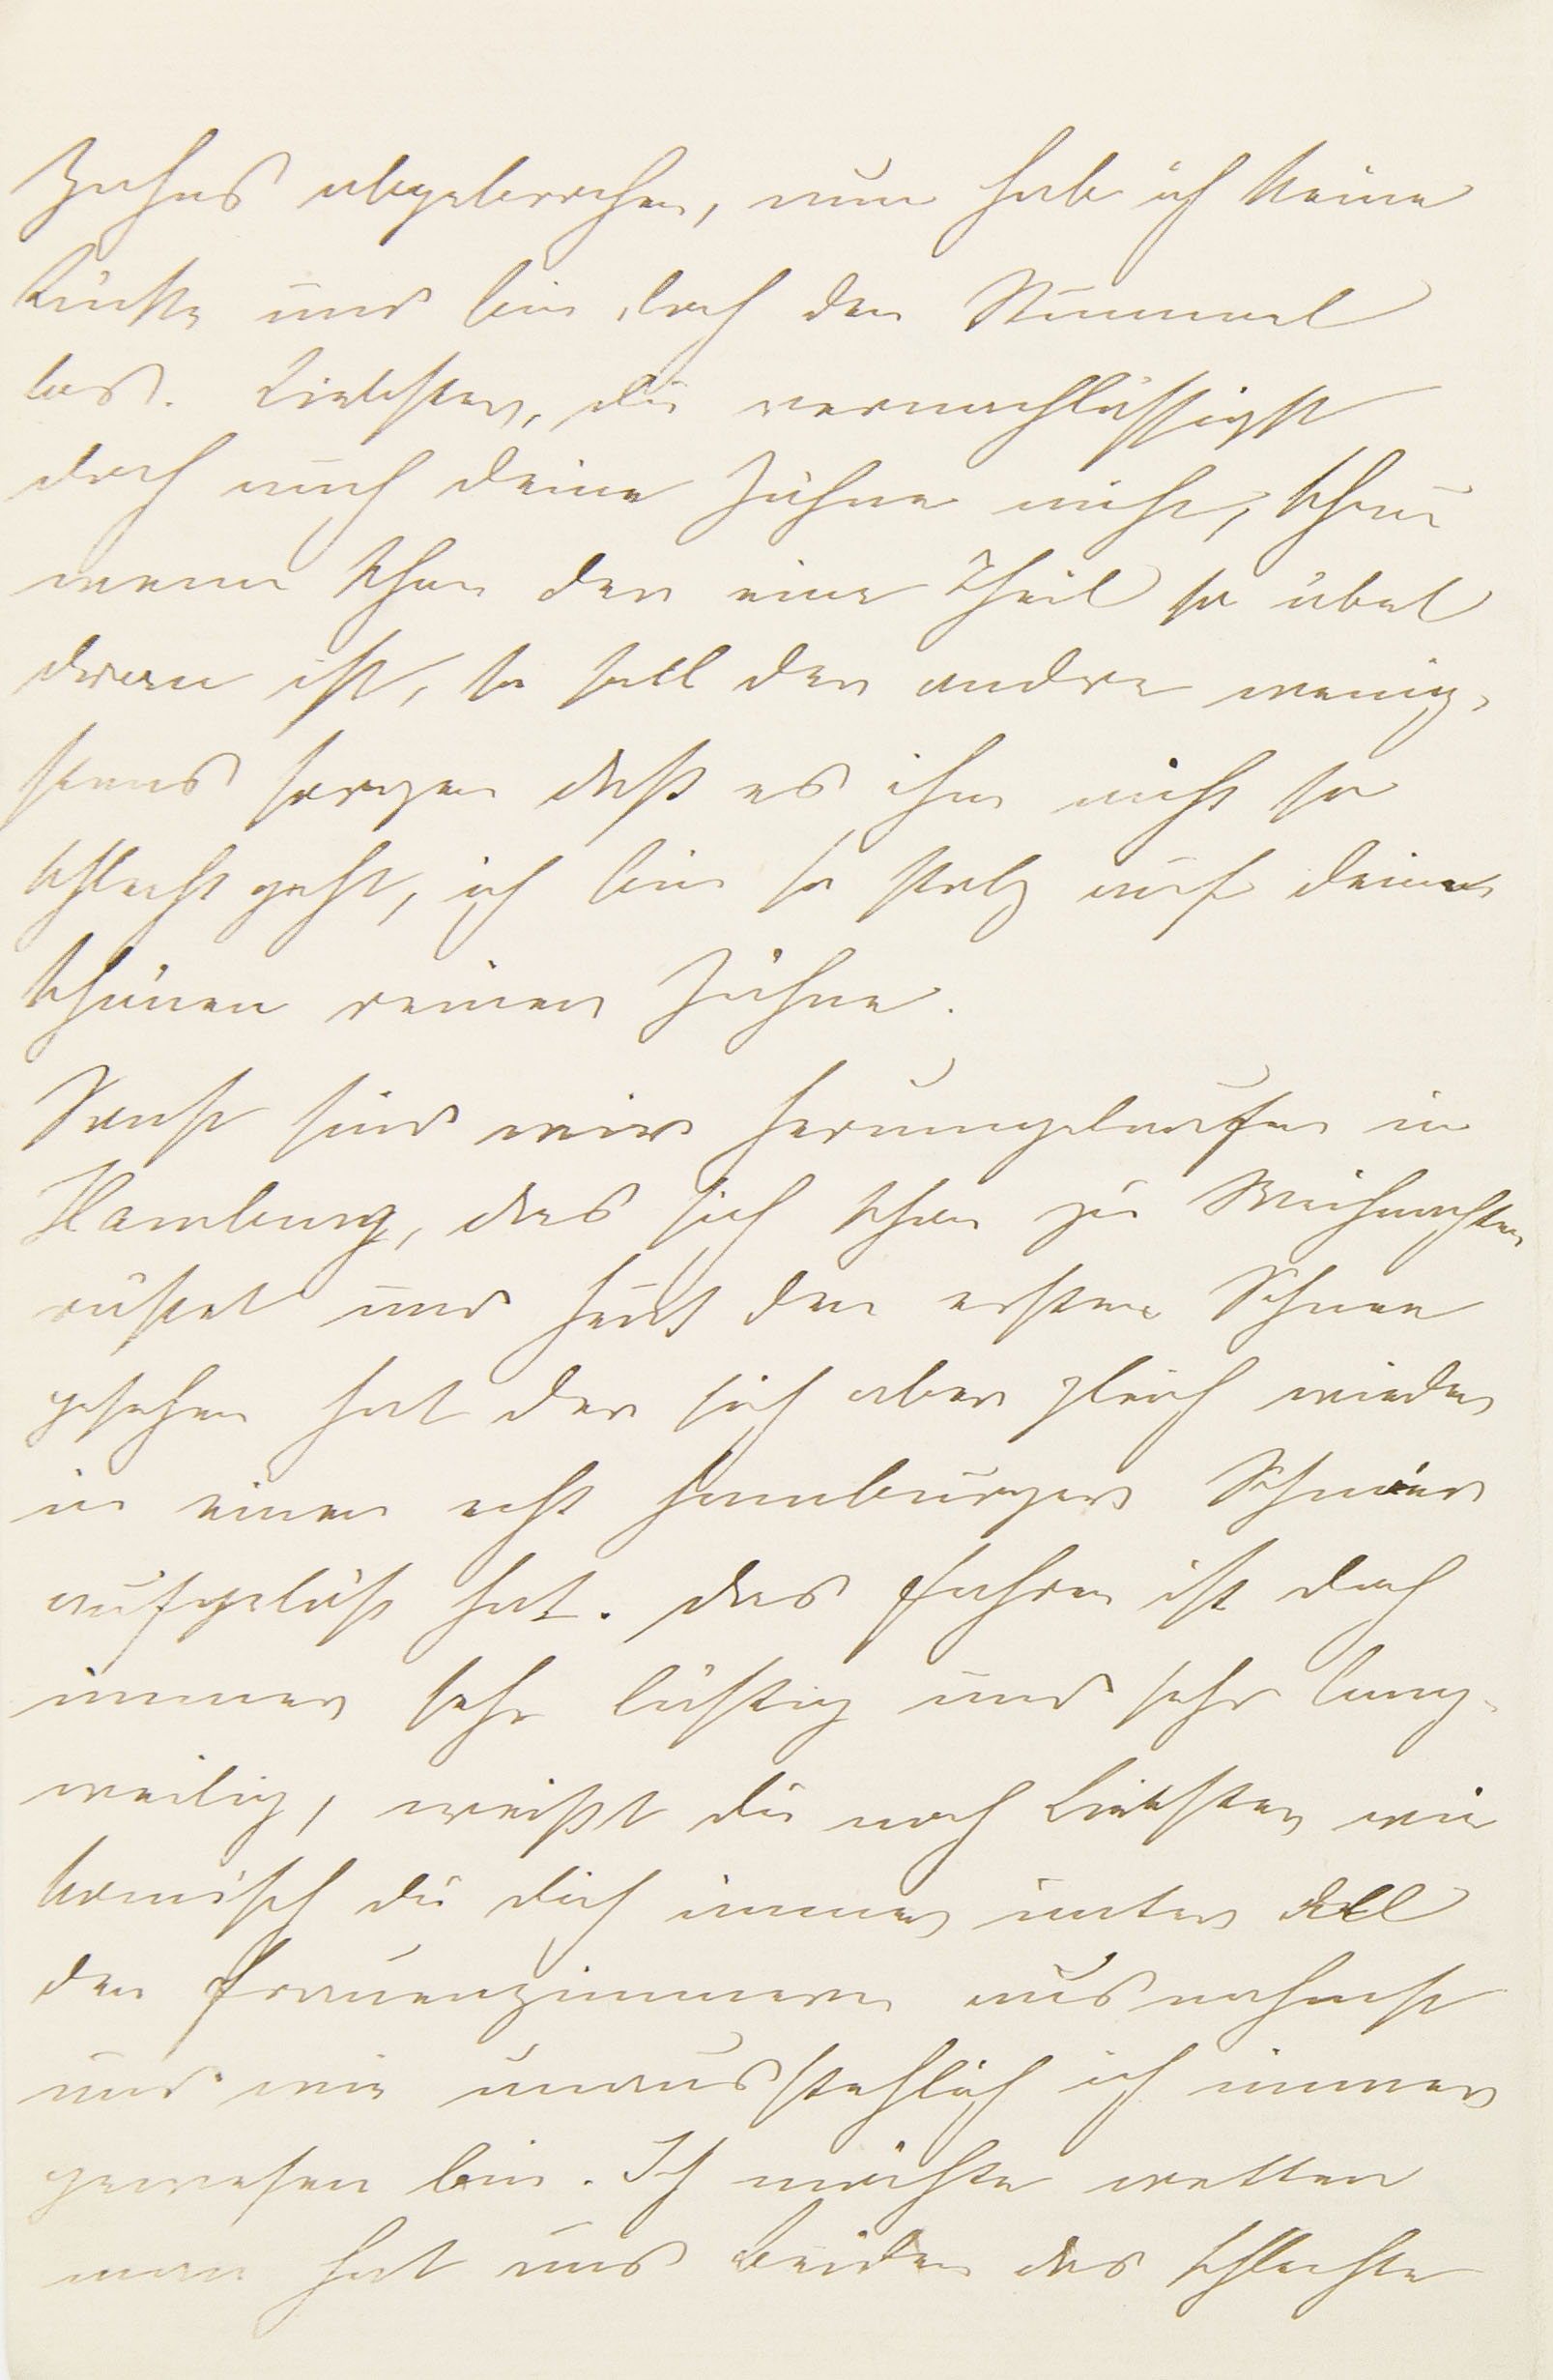 Zahns abgebrochen, nun hab ich keine
Lücke und bin doch den Stummel
los. Liebster, du vernachlässigst
doch auch deine Zähne nicht, schau
wenn schon der eine Theil so übel
dran ist, so soll der andre wenig-
stens sorgen daß es ihm nicht so
schlecht geht, ich bin so stolz auf deine
schönen reinen Zähne.
Sonst sind wir herumgelaufen in
Hamburg, das sich schon zu Weihnachten
rüstet und heut den ersten Schnee
gesehen hat der sich aber gleich wieder
in einen echt hamburger Schmier
aufgelöst hat. Das Fahren ist doch
immer sehr lustig und sehr lang-
weilig, weißt du noch Liebster wie
komisch du dich immer unter all
den Frauenzimmern ausnahmst
und wie unausstehlich ich immer
gewesen bin. Ich möchte wetten
man hat uns beiden das schlechte